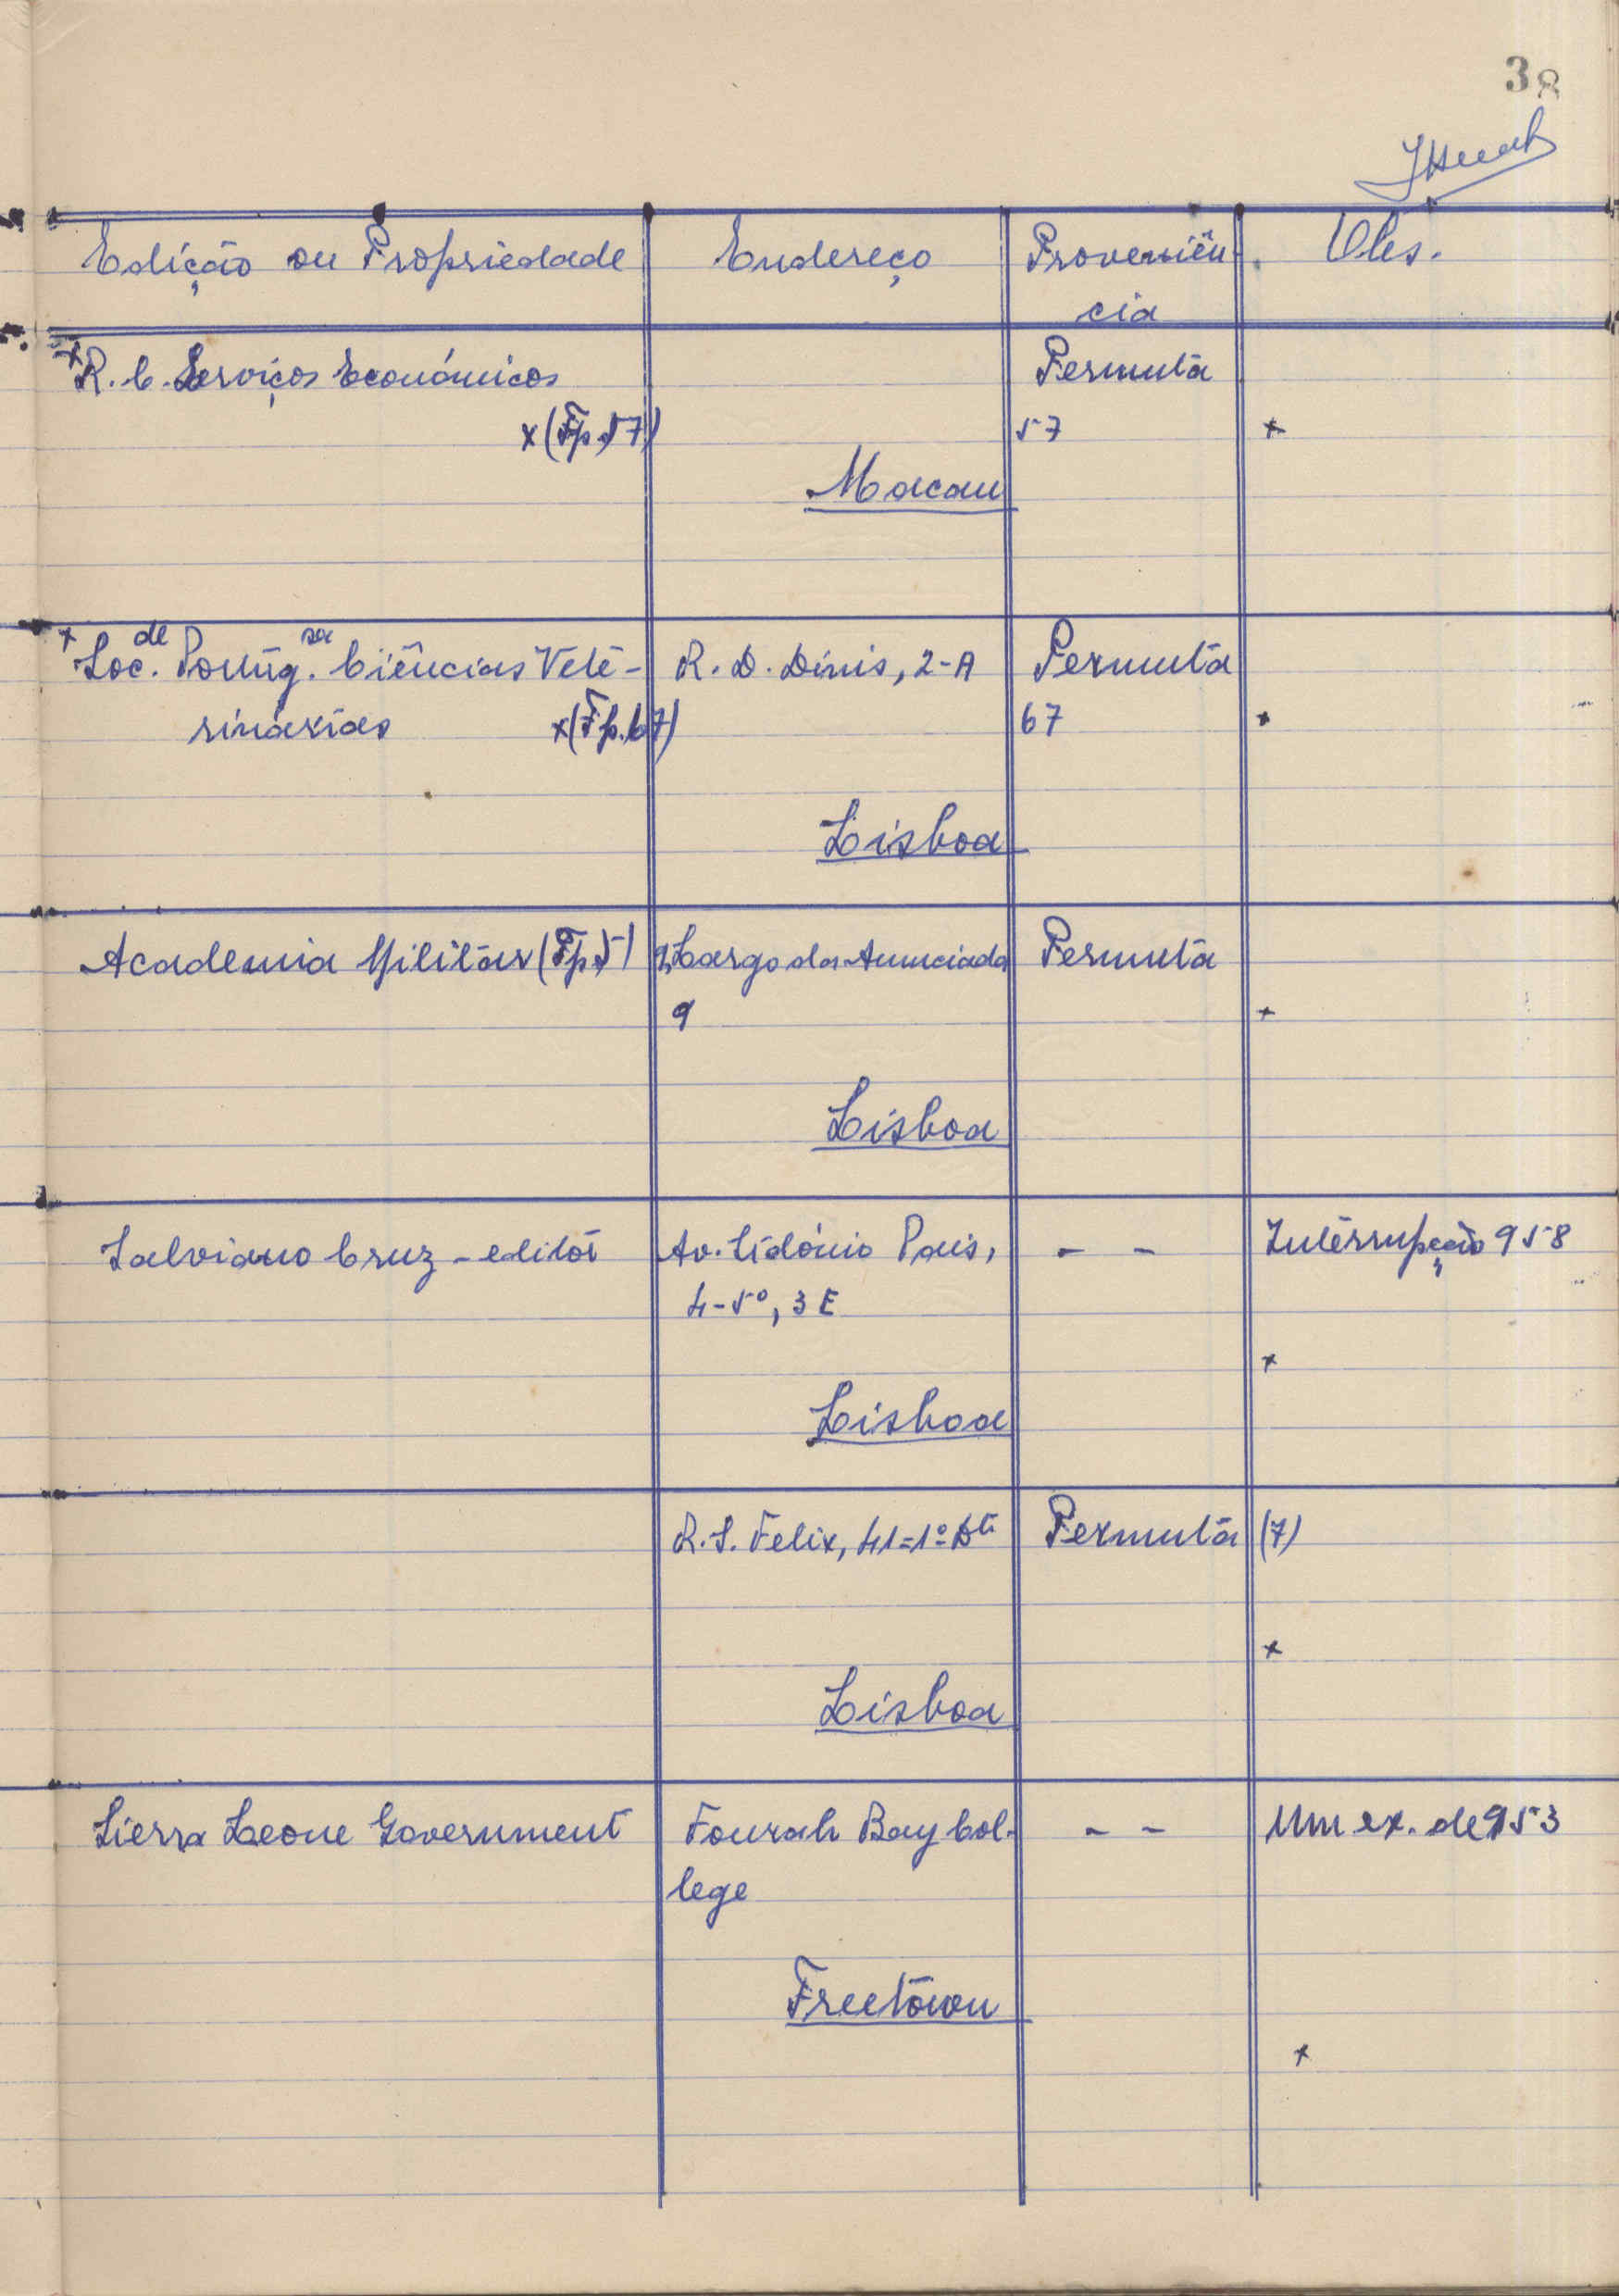 38
Edição ou Propriedade Endereço Proveniên- Obs.
cia
x R. C. Serviços Económicos Permuta
x (Fp. 57) 57 x
Macau
x Soc.de Portug.sa Ciências Vete- R. D. Dinis, 2-A Permuta
rinárias x (Fp. 67) 67 x
Lisboa
Academia Militar (Fp. 5) Largo da Anunciada Permuta
9 x
Lisboa
Salviano Cruz - editor Av. Sidónio Pais, - - Interrupção 958
4-5º, 3 E
x
Lisboa
R. S. Felix, 41=1º Dtº Permuta (7)
x
Lisboa
Sierra Leone Government Fourah Bay Col- - - Um ex. de 953
lege
Freetown
x